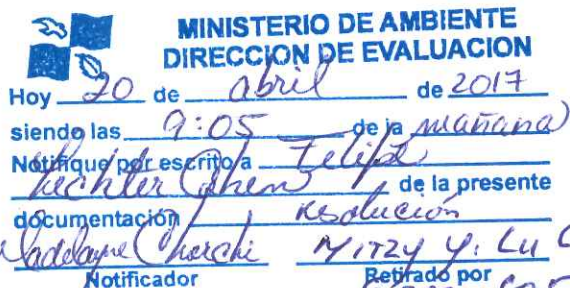 MINISTERIO DE AMBIENTE
DIRECCION DE EVALUACION
Hoy 20 de abril de 2017
siendo las 9:05 de la mañana
Notifique por escrito a Felipe
Cohen de la presente
documentación Resolución
Mitzy Y. Lu
Notificador Retirado por